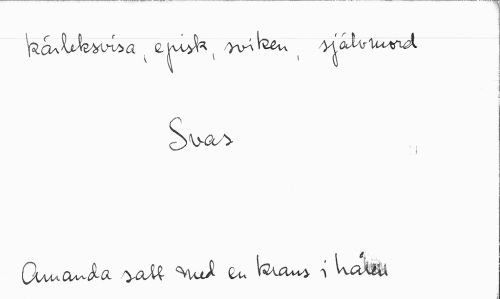 kärleksvisa, episk, sviken, självmord
Svas
Amanda satt med en krans i håret